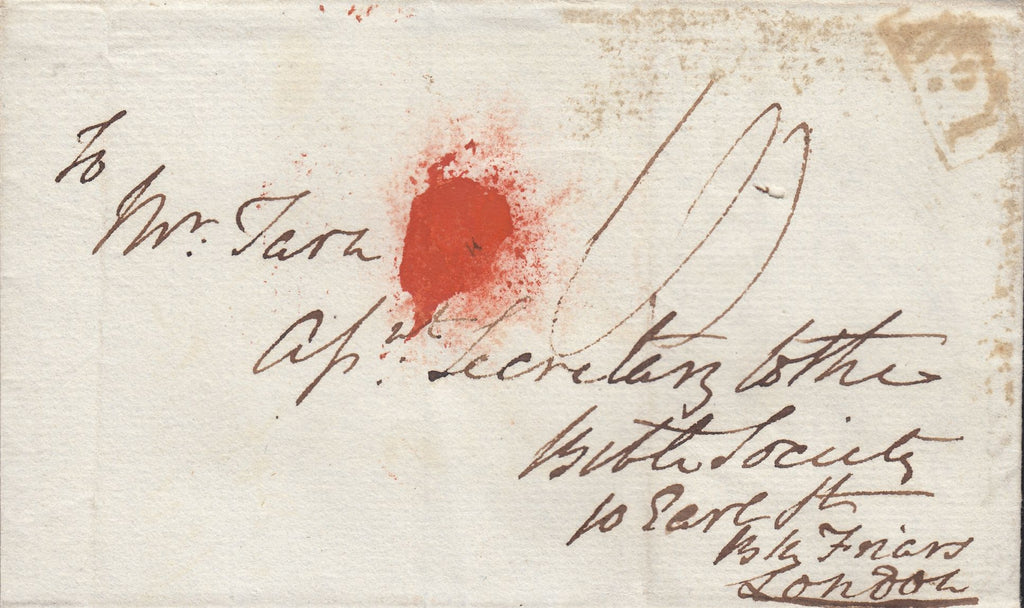 To
Mr. Tarn
Assnt. Secretary to the
Bible Society
10 Earl St
Blk Friars
London
10